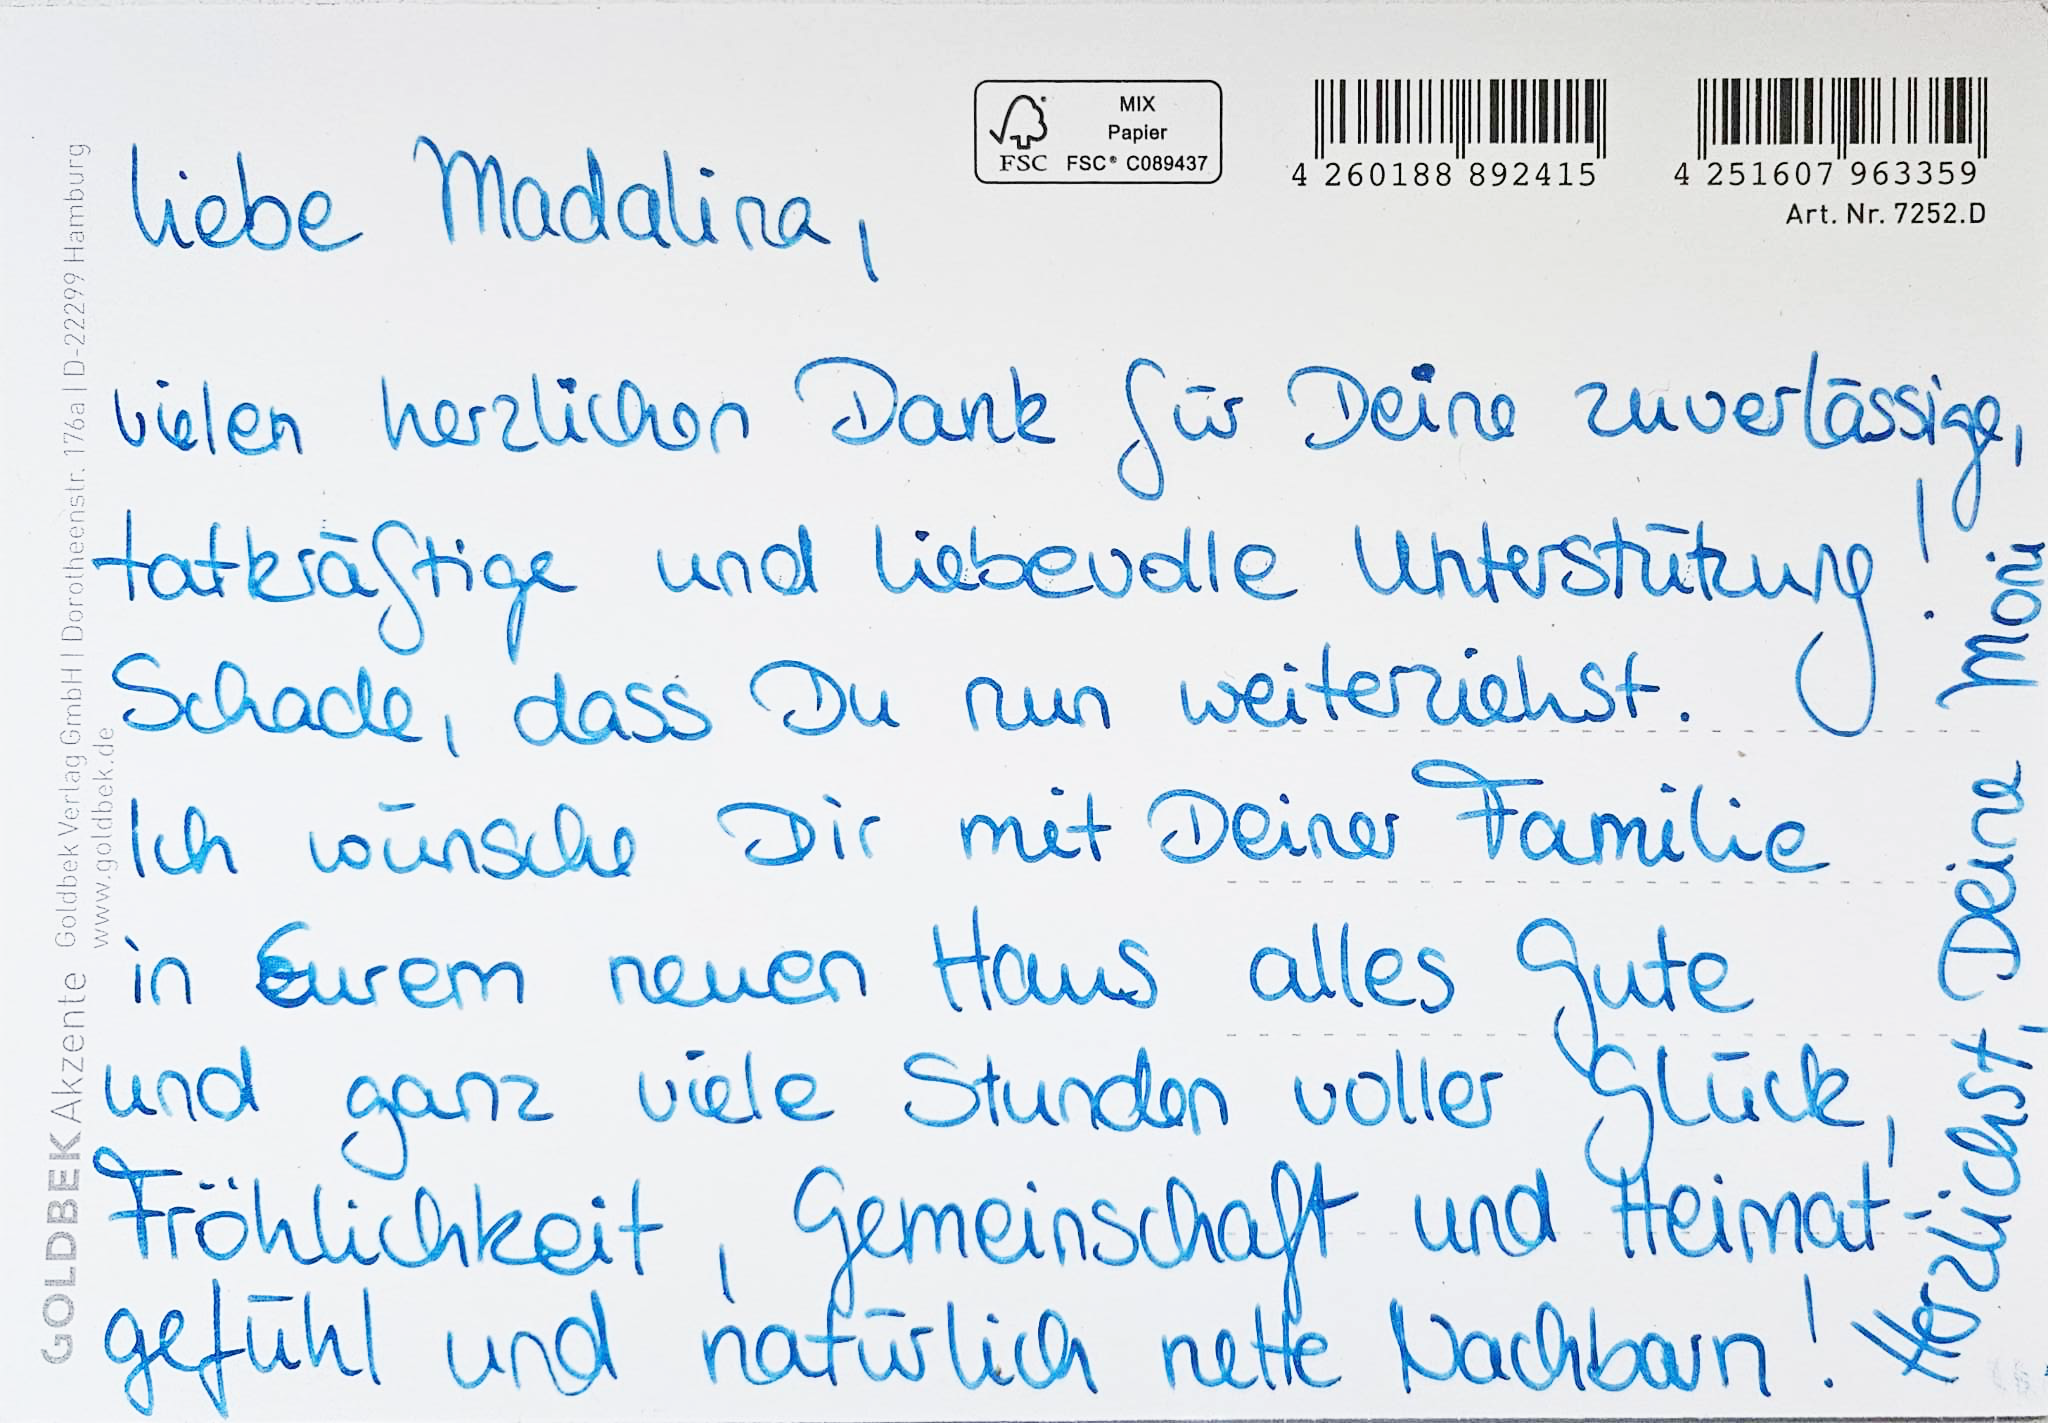 MIX
Papier
FSC FSC® C089437
4 260188 892415
4 251607 963359
Art. Nr. 7252.D
liebe Madalina,
vielen herzlichen Dank für Deine zuverlässige,
tatkräftige und liebevolle Unterstützung!
Schade, dass Du nun weiterziehst.
Ich wünsche Dir mit Deiner Familie
in Eurem neuen Haus alles Gute
und ganz viele Stunden voller Glück,
Fröhlichkeit, Gemeinschaft und Heimat-
gefühl und natürlich nette Nachbarn!
Herzlichst, Deine Moni
GOLDBEK Akzente Goldbek Verlag GmbH | Dorotheenstr. 176a | D-22299 Hamburg
www.goldbek.de